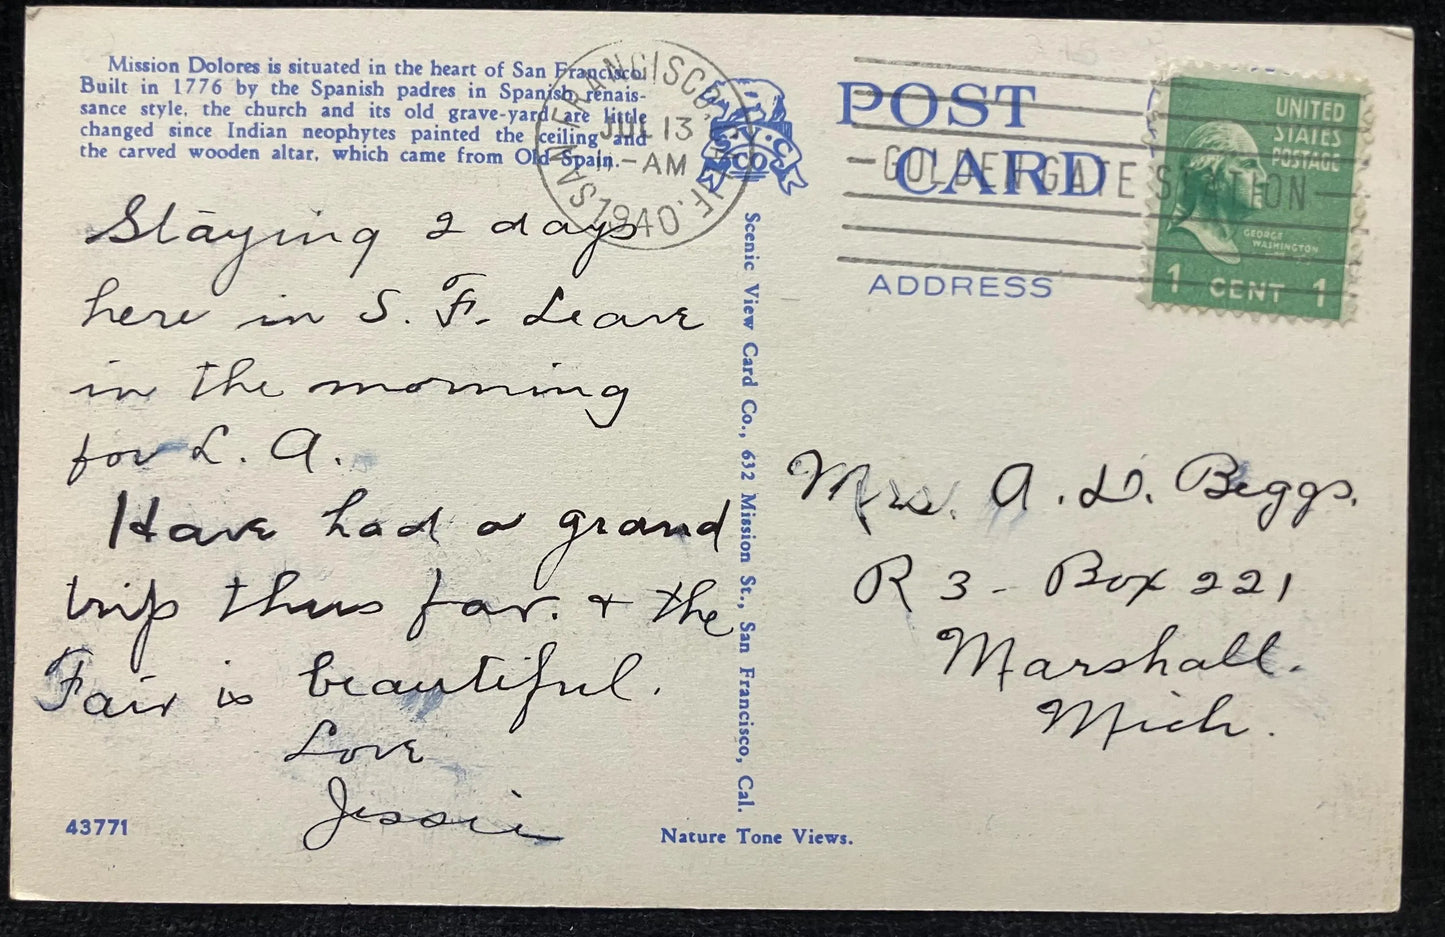 Mission Dolores is situated in the heart of San Francisco.
Built in 1776 by the Spanish padres in Spanish renais-
sance style, the church and its old grave-yard are little
changed since Indian neophytes painted the ceiling and
the carved wooden altar, which came from Old Spain.
Staying 2 days
here in S. F. Leave
in the morning
for L. A.
Have had a grand
trip thus far. + the
Fair is beautiful.
Love
Jessie
43771
SAN FRANCISCO, CALIF.
JUL 13
AM
1940
S.V.C.
CO.
Scenic View Card Co., 632 Mission St., San Francisco, Cal.
Nature Tone Views.
POST
CARD
GOLDEN GATE STATION
ADDRESS
UNITED
STATES
POSTAGE
GEORGE
WASHINGTON
1 CENT 1
Mrs. A. D. Beggs.
R 3 - Box 221
Marshall.
Mich.